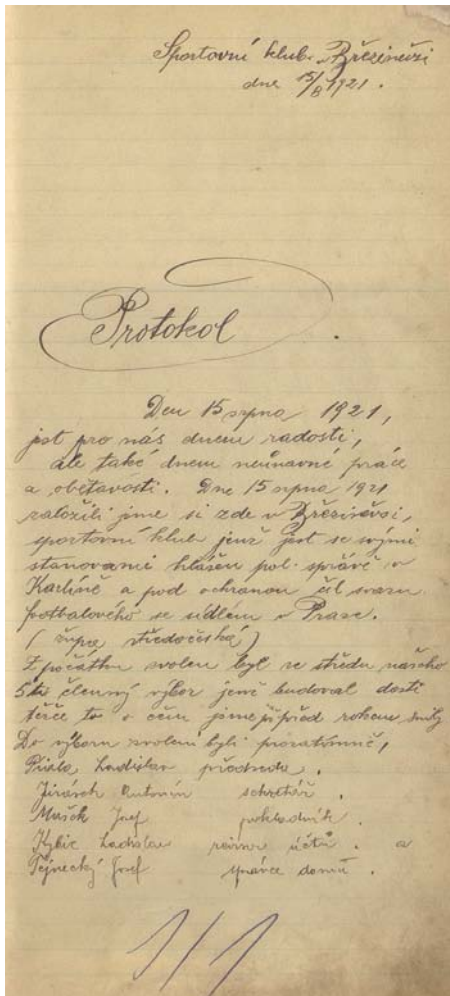 Sportovní klub v Březiněvsi
dne 15/8 1921.
Protokol.
Den 15 srpna 1921,
jest pro nás dnem radosti,
ale také dnem neúnavné práce
a obětavosti. Dne 15 srpna 1921
založili jsme si zde v Březiněvsi,
sportovní klub jenž jest se svými
stanovami hlášen pol. správě v
Karlíně a pod ochranou čsl svazu
footbalového se sídlem v Praze.
(župa středočeská)
Z počátku zvolen byl ze středu našeho
5ti členný výbor jenž budoval dosti
těžce to o čem jsme již před rokem snily
Do výboru zvoleni byli prozatímně,
Ladislav předseda.
Jirásek Antonín sekretář.
Mašek Josef pokladník.
Kybic Ladislav revisor účtů. a
Týnecký Josef správce domů.
1/1